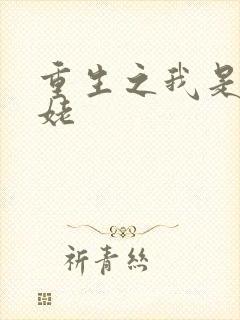 重生之我是
姥
祈青丝